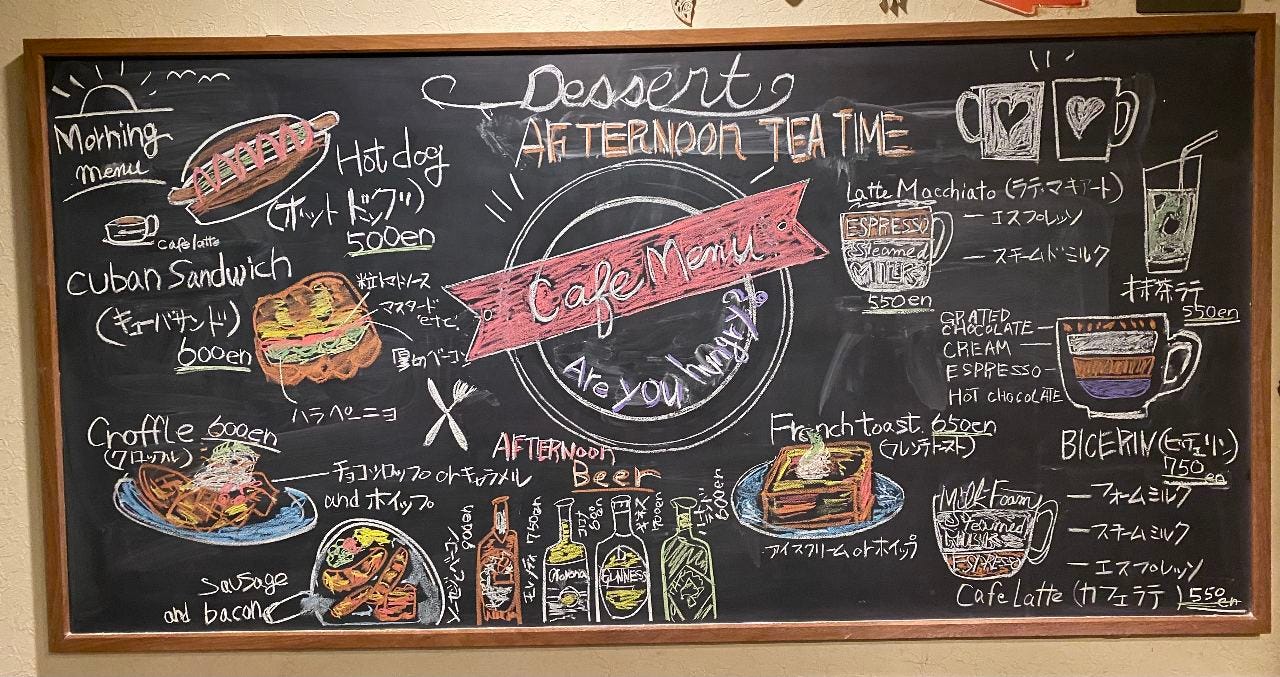 Dessert
AFTERNOON TEA TIME
Morning
menu
Hot dog
(ホットドッグ)
500en
Cafe latte
Cuban Sandwich
(キューバサンド)
600en
粒トマトソース
マスタード
etc.
厚切ベーコン
ハラペーニョ
Cafe Menu
Are you hungry?
Latte Macchiato (ラテ・マキアート)
ESPRESSO
Steamed
MILK
エスプレッソ
スチームドミルク
550en
抹茶ラテ
550en
GRATED
CHOCOLATE
CREAM
ESPRESSO
HOT CHOCOLATE
BICERIN (ビチェリン)
750en
Croffle 600en
(クロッフル)
チョコシロップ or キャラメル
and ホイップ
Sausage
and bacon
AFTERNOON
Beer
モレッティ 750en
コロナ
ギネス
700en
GUINNESS
600en
French toast 650en
(フレンチトースト)
アイスクリーム or ホイップ
Milk Foam
Steamed
MILK
ESPRESSO
フォームミルク
スチームミルク
エスプレッソ
Cafe Latte (カフェラテ) 550en